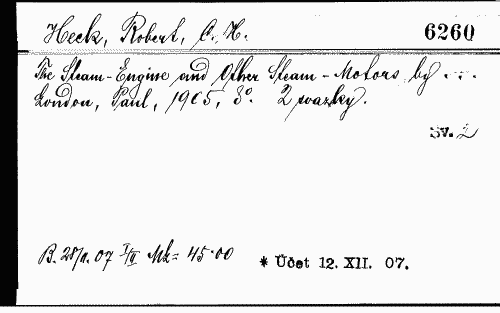 Heck, Robert, C. H. 6260
The Steam-Engine and Other Steam-Motors by
London, Paul, 1905, 8°. 2 svazky.
Sv. 2
B. 28/1. 07 I/II Mk = 45·00
* Účet 12. XII. 07.